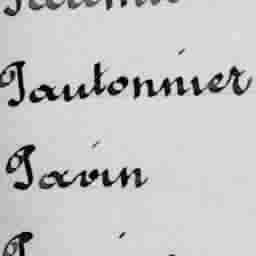 Pautonnier
Pavin